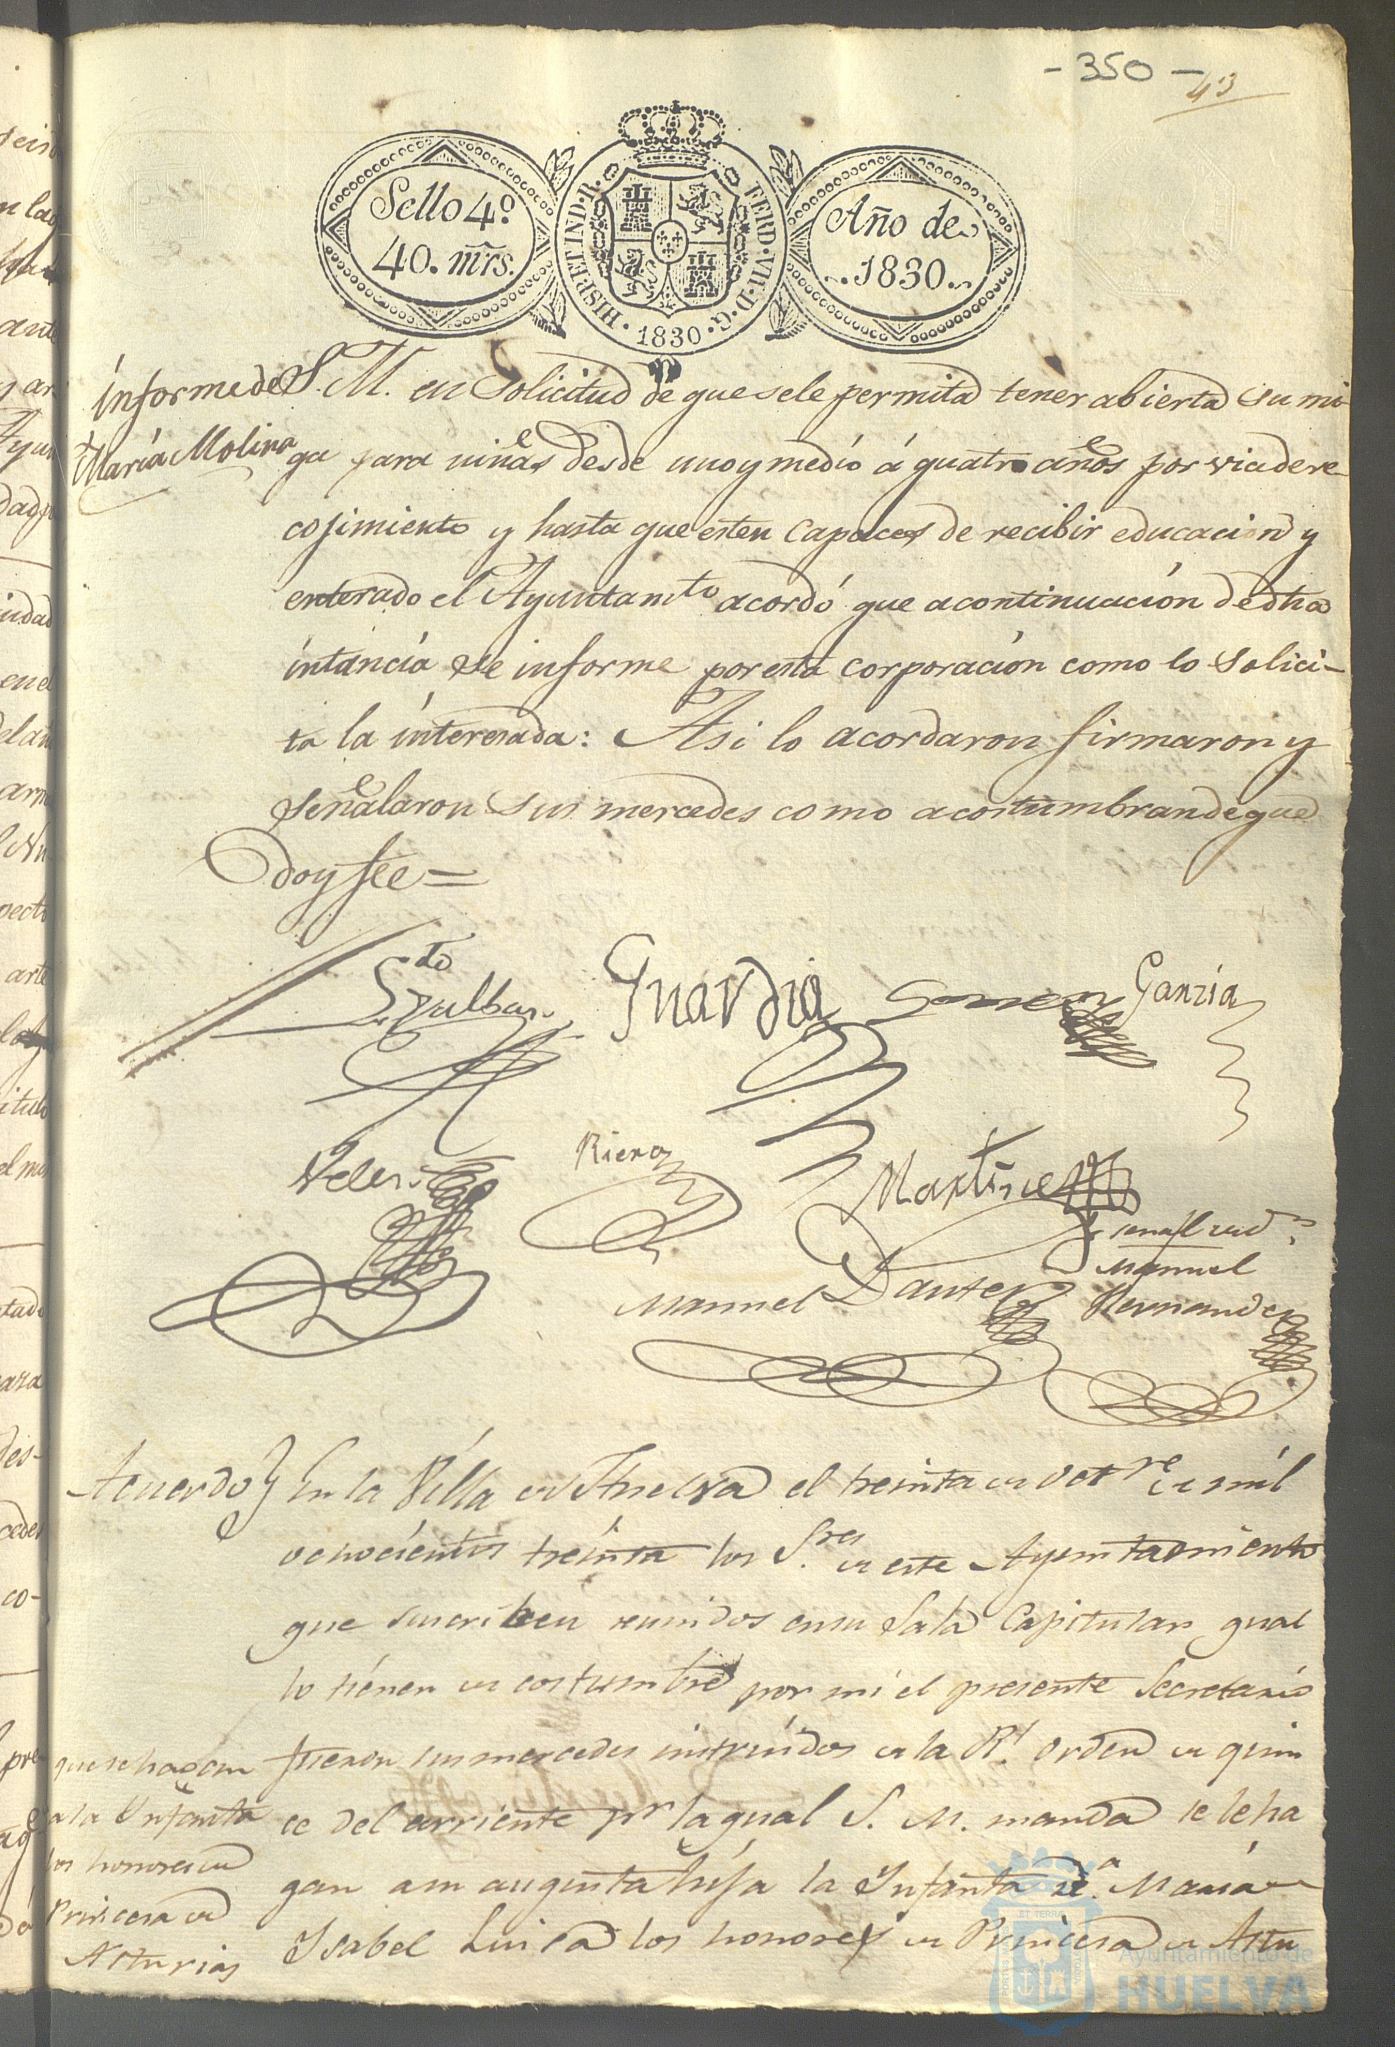 - 350 -
43
Sello 4º
40. mrs.
HISP. ET IND. R.
FERD. VII. D. G.
1830
Año de
1830.
informe de
Maria Molina
S. M. en Solicitud de que sele permita tener abierta su mi-
ga para niñas desde uno y medio á quatro años por via de re-
cojimiento y hasta que esten capaces de recibir educacion y
enterado el Ayuntamto acordó que acontinuacion de dha
intancia se informe por esta corporacion como lo solici-
ta la interesada: Asi lo acordaron firmaron y
señalaron sus mercedes como acostumbran de que
doy fee =
Guardia
Garzia
Velez
Riera
Martinez
Manuel Dante
Manuel
Hernandez
Acuerdo
En la Villa de Huelva el treinta de Octre de mil
ochocientos treinta los Sres de este Ayuntamiento
que suscriben reunidos en su Sala Capitular qual
lo tienen de costumbre por mi el presente Secretario
fueron sus mercedes instruidos de la Rl. orden de quin
ce del corriente pr la qual S. M. manda se le ha
gan a su augusta hija la Infanta Dª. Maria
Isabel Luisa los honores de Princesa de Astu
que se hagan
a la Infanta
los honores de
Princesa de
Asturias
Ayuntamiento de
HUELVA